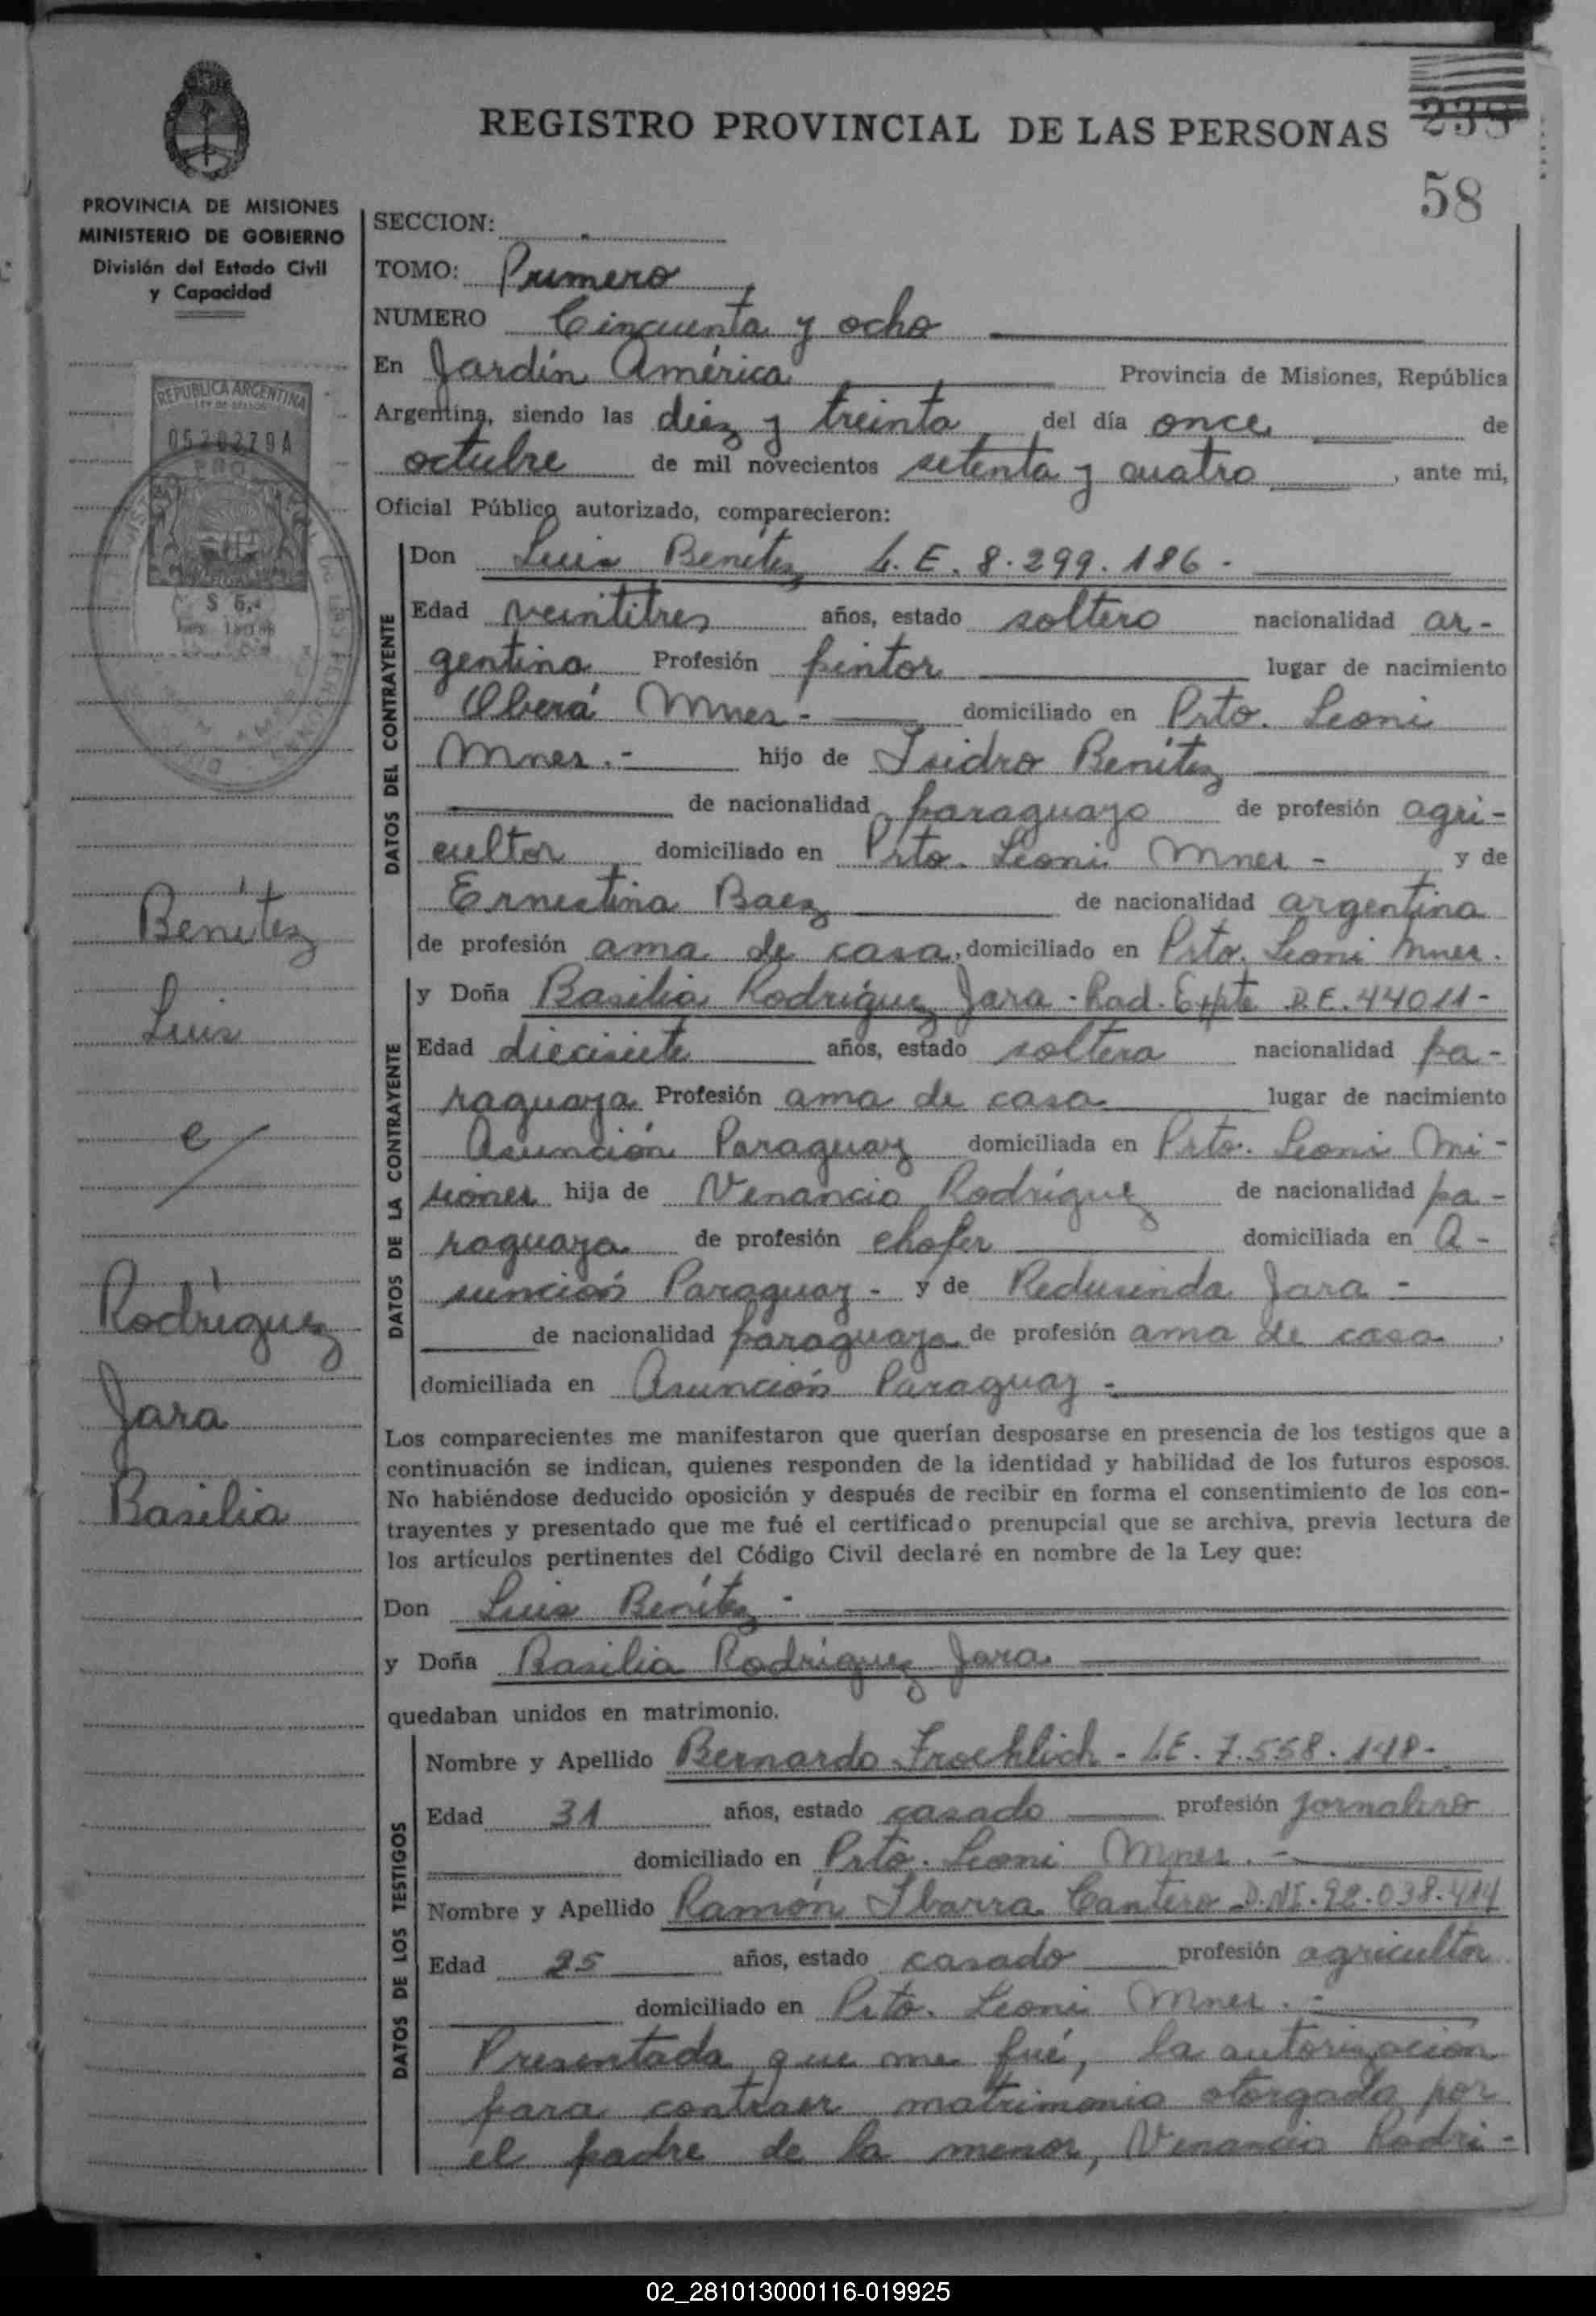 REGISTRO PROVINCIAL DE LAS PERSONAS
58
PROVINCIA DE MISIONES
MINISTERIO DE GOBIERNO
División del Estado Civil
y Capacidad
REPUBLICA ARGENTINA
LEY DE SELLOS
0520279A
$ 5,-
SECCION:
TOMO: Primero
NUMERO Cincuenta y ocho
En Jardín América Provincia de Misiones, República
Argentina, siendo las diez y treinta del día once de
octubre de mil novecientos setenta y cuatro, ante mi,
Oficial Público autorizado, comparecieron:
DATOS DEL CONTRAYENTE
Don Luis Benítez L.E. 8.299.186.-
Edad veintitres años, estado soltero nacionalidad ar-
gentina Profesión pintor lugar de nacimiento
Oberá Mnes.- domiciliado en Pto. Leoni
Mnes.- hijo de Isidro Benítez
de nacionalidad paraguayo de profesión agri-
cultor domiciliado en Pto. Leoni Mnes - y de
Ernestina Baez de nacionalidad argentina
de profesión ama de casa, domiciliado en Pto. Leoni Mnes.
DATOS DE LA CONTRAYENTE
y Doña Basilia Rodríguez Jara - Rad. Expte D.E. 44011-
Edad diecisiete años, estado soltera nacionalidad pa-
raguaya Profesión ama de casa lugar de nacimiento
Asunción Paraguay domiciliada en Pto. Leoni Mi-
siones hija de Venancio Rodríguez de nacionalidad pa-
raguaya de profesión chofer domiciliada en A-
sunción Paraguay - y de Redusinda Jara -
de nacionalidad paraguaya de profesión ama de casa,
domiciliada en Asunción Paraguay -
Los comparecientes me manifestaron que querían desposarse en presencia de los testigos que a
continuación se indican, quienes responden de la identidad y habilidad de los futuros esposos.
No habiéndose deducido oposición y después de recibir en forma el consentimiento de los con-
trayentes y presentado que me fué el certificado prenupcial que se archiva, previa lectura de
los artículos pertinentes del Código Civil declaré en nombre de la Ley que:
Don Luis Benítez -
y Doña Basilia Rodríguez Jara
quedaban unidos en matrimonio.
DATOS DE LOS TESTIGOS
Nombre y Apellido Bernardo Froehlich - L.E. 7.558.148-
Edad 31 años, estado casado profesión jornalero
domiciliado en Pto. Leoni Mnes. -
Nombre y Apellido Ramón Ibarra Cantero D.NI. 92.038.414
Edad 25 años, estado casado profesión agricultor
domiciliado en Pto. Leoni Mnes. -
Presentada que me fué, la autorización
para contraer matrimonio otorgada por
el padre de la menor, Venancio Rodri-
Benítez
Luis
e/
Rodríguez
Jara
Basilia
02_281013000116-019925